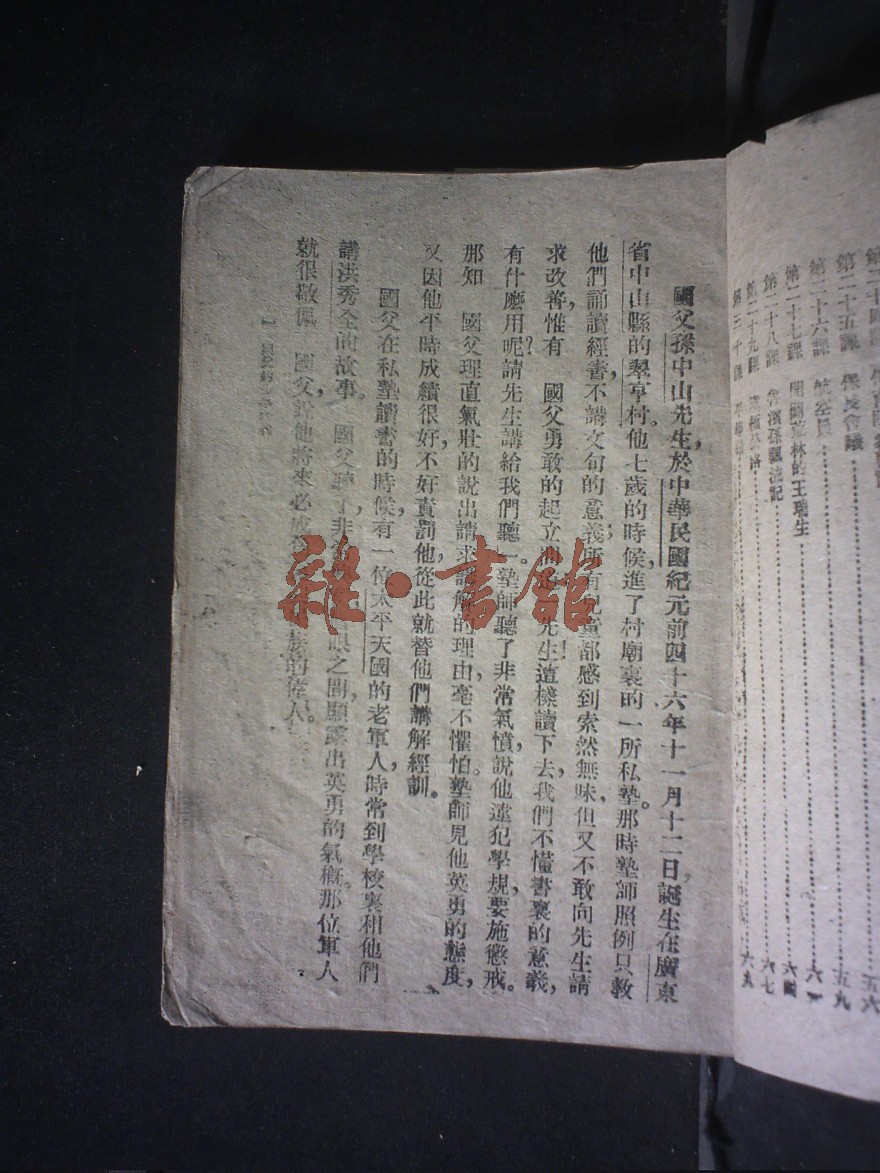 第二十五課 保長會議 五九
第二十六課 航空員 六一
第二十七課 開闢荒林的王瑞生 六四
第二十八課 六七
第二十九課
國父孫中山先生,於中華民國紀元前四十六年十一月十二日,誕生在廣東
省中山縣的翠亨村。他七歲的時候,進了村廟裏的一所私塾。那時塾師照例只教
他們誦讀經書,不講文句的意義;所有兒童都感到索然無味,但又不敢向先生請
求改善,惟有 國父勇敢的起立 先生這樣讀下去,我們不懂書裏的意義,
有什麼用呢?請先生講給我們聽。塾師聽了非常氣憤,說他違犯學規,要施懲戒。
那知 國父理直氣壯的說出請求講解的理由,毫不懼怕。塾師見他英勇的態度,
又因他平時成績很好,不好責罰他,從此就替他們講解經訓。
國父在私塾讀書的時候,有一位太平天國的老軍人,時常到學校裏和他們
講洪秀全的故事。 國父聽了,非 眼之間,顯露出英勇的氣概。那位軍人
就很敬佩 國父,說他將來必成 族的偉人。
雜·書館